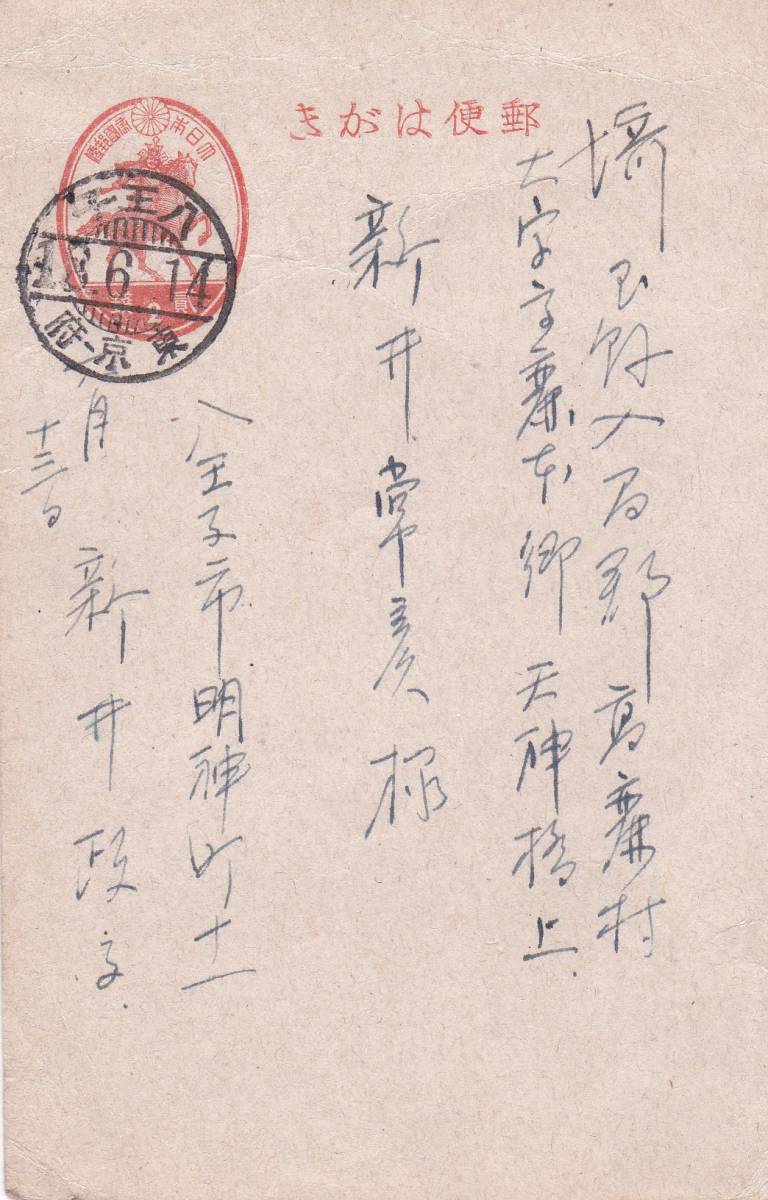 郵便はがき
大日本帝國郵便
八王子
13.6.14
東京府
埼玉縣入間郡高麗村
大字高麗本郷天神橋上
新井常彦様
八王子市明神町十一
月
十三日
新井政